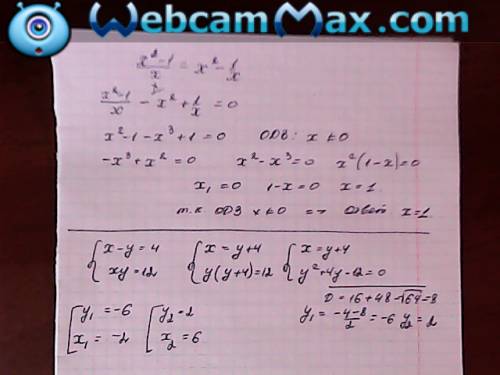 WebcamMax.com
x²-1/x = x² - 1/x
x²-1/x - x² + 1/x = 0
x²-1-x³+1=0 ОДЗ: x≠0
-x³+x²=0 x²-x³=0 x²(1-x)=0
x₁=0 1-x=0 x=1
т.к ОДЗ x≠0 => Ответ x=1
{x-y=4 {x=y+4 {x=y+4
{xy=12 {y(y+4)=12 {y²+4y-12=0
D=16+48=√64=8
[y₁=-6 [y₂=2 y₁=-4-8/2=-6 y₂=2
[x₁=-2 [x₂=6